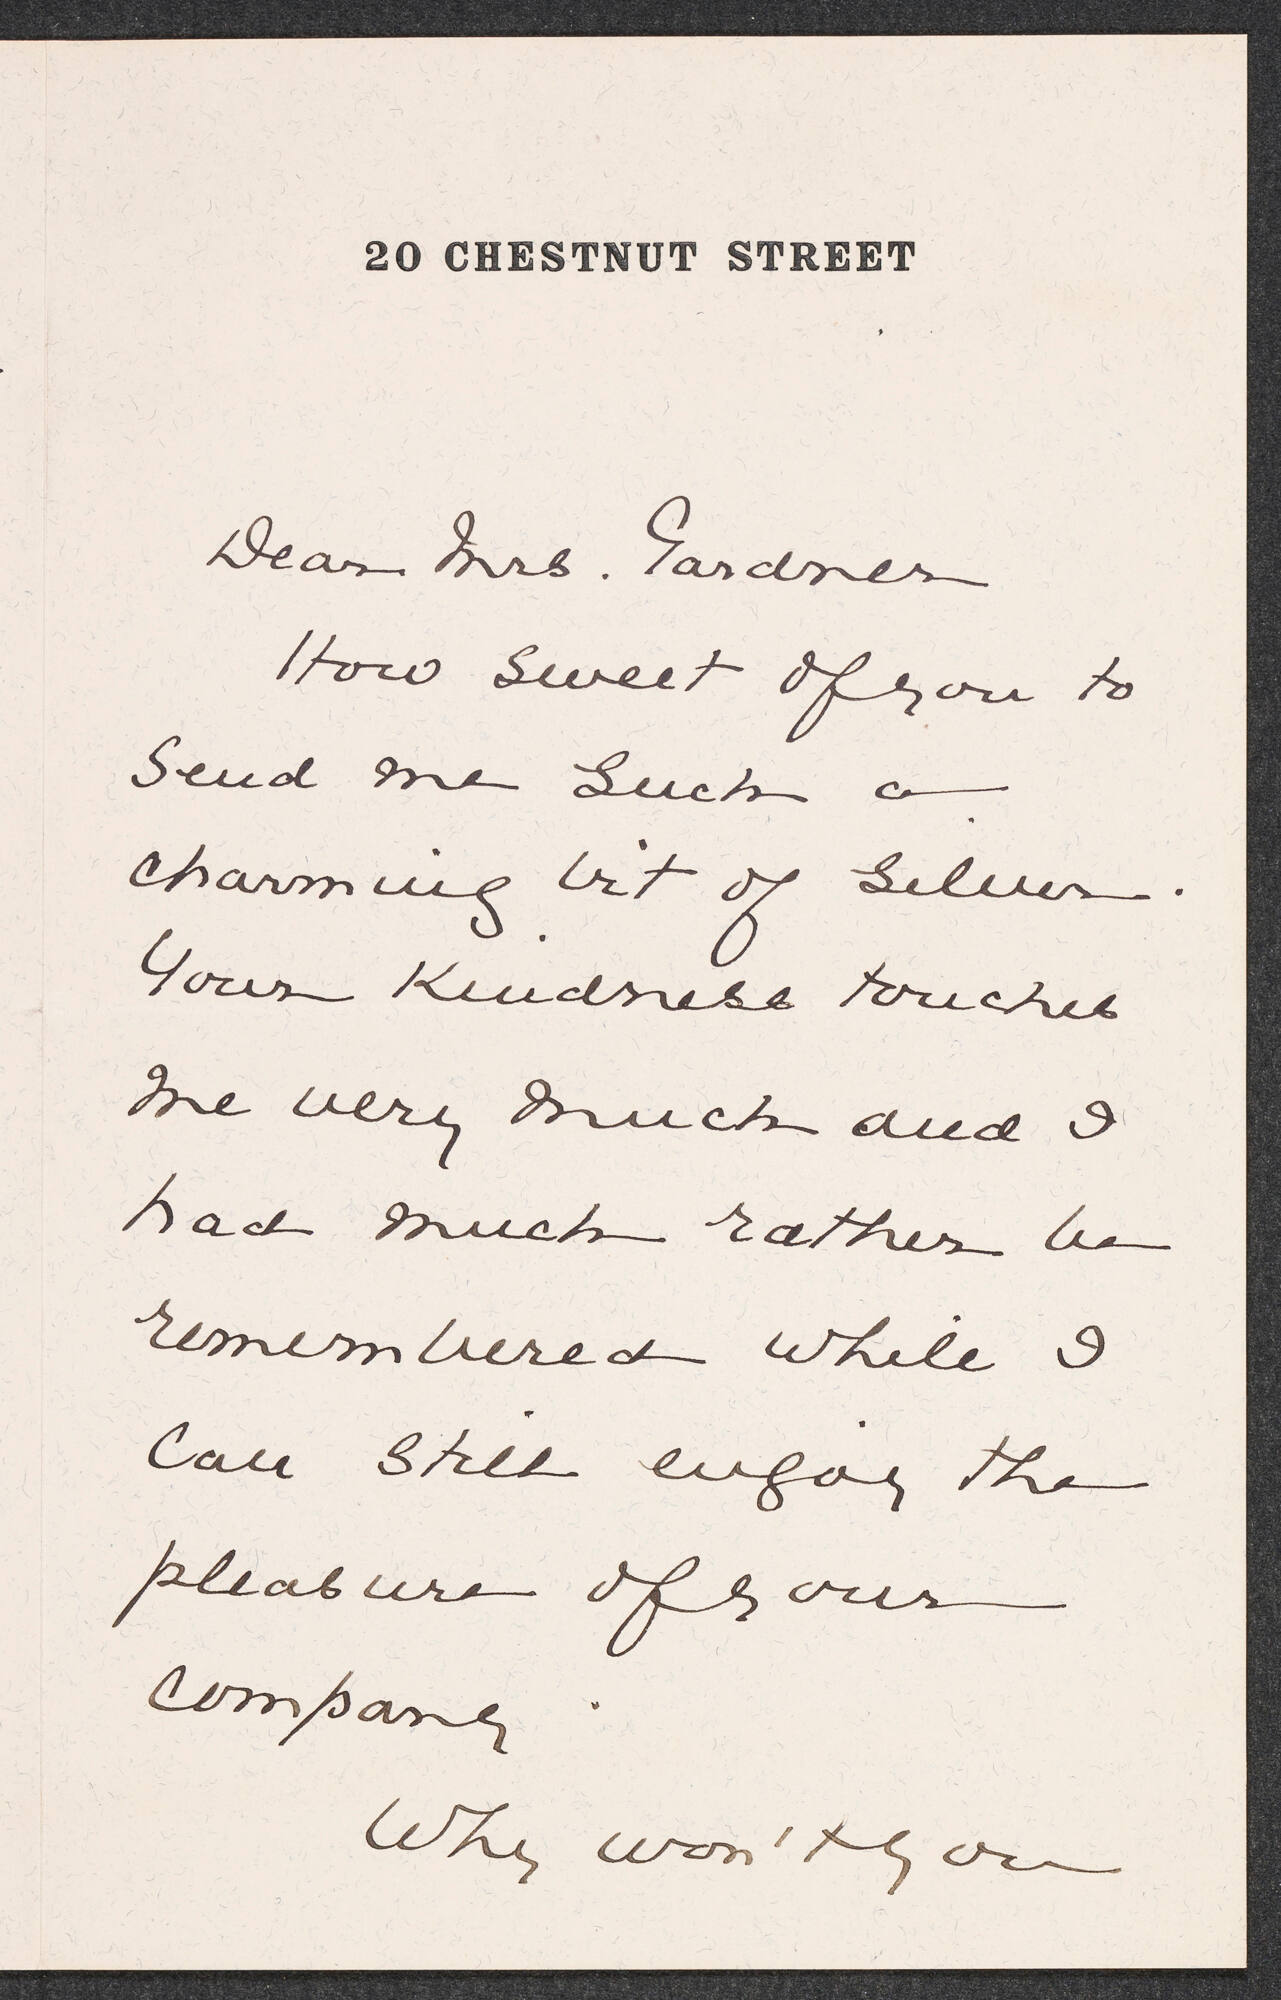 20 CHESTNUT STREET
Dear Mrs. Gardner
How sweet of you to
send me such a
charming bit of silver.
Your kindness touches
me very much and I
had much rather be
remembered while I
can still enjoy the
pleasure of your
company.
Why won't you